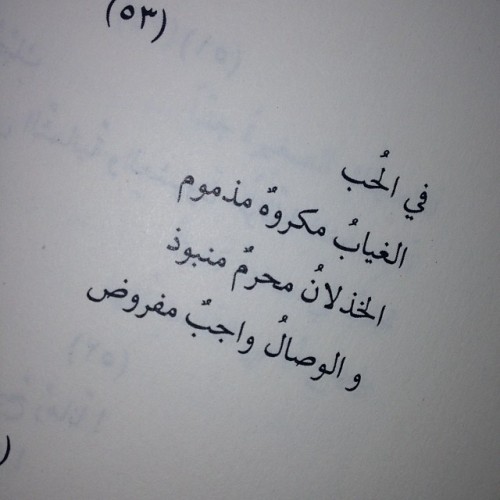 (٥٣)
في الحُب
الغيابُ مكروهٌ مذموم
الخذلانُ محرمٌ منبوذ
و الوصالُ واجبٌ مفروض